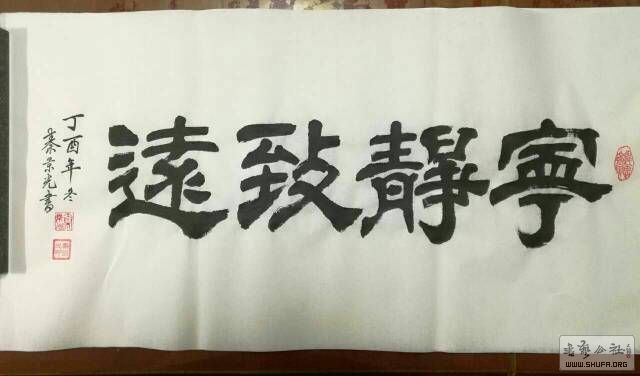 寧靜致遠
丁酉年冬
秦景光書
WWW.SHUFA.ORG